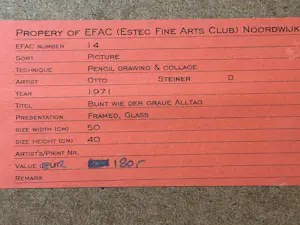 Propery of EFAC (Estec Fine Arts Club) Noordwijk
EFAC number 14
Sort Picture
Technique Pencil drawing & collage
Artist Otto Steiner D
Year 1971
Titel Bunt wie der graue Alltag
Presentation Framed, Glass
size width (cm) 50
size height (cm) 40
Artist's/Print Nr.
Value EUR 180,-
Remark